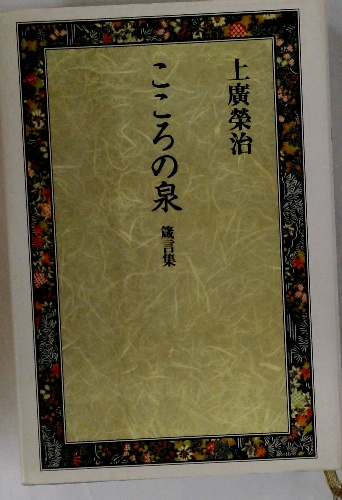 上廣榮治
こころの泉 箴言集